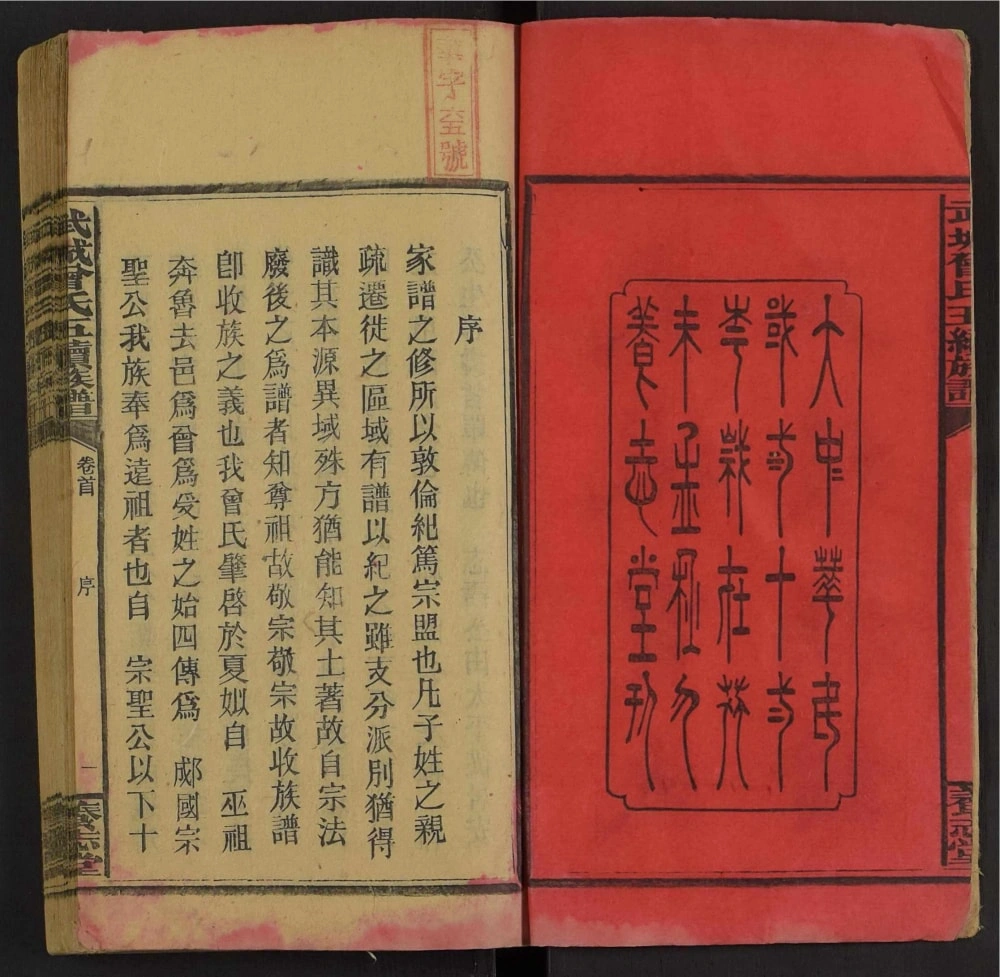 武城曾氏五續族譜
養志堂
大中華民
國十
年歲在癸
未
養志堂刊
字號
序
家譜之修所以敦倫紀篤宗盟也凡子姓之親
疏遷徙之區域有譜以紀之雖支分派別猶得
識其本源異域殊方猶能知其土著故自宗法
廢後之為譜者知尊祖故敬宗敬宗故收族譜
卽收族之義也我曾氏肇啓於夏姒自 巫祖
奔魯去邑為曾為受姓之始四傳為 郕國宗
聖公我族奉為遠祖者也自 宗聖公以下十
武城曾氏五續族譜
卷首
序
一
養志堂